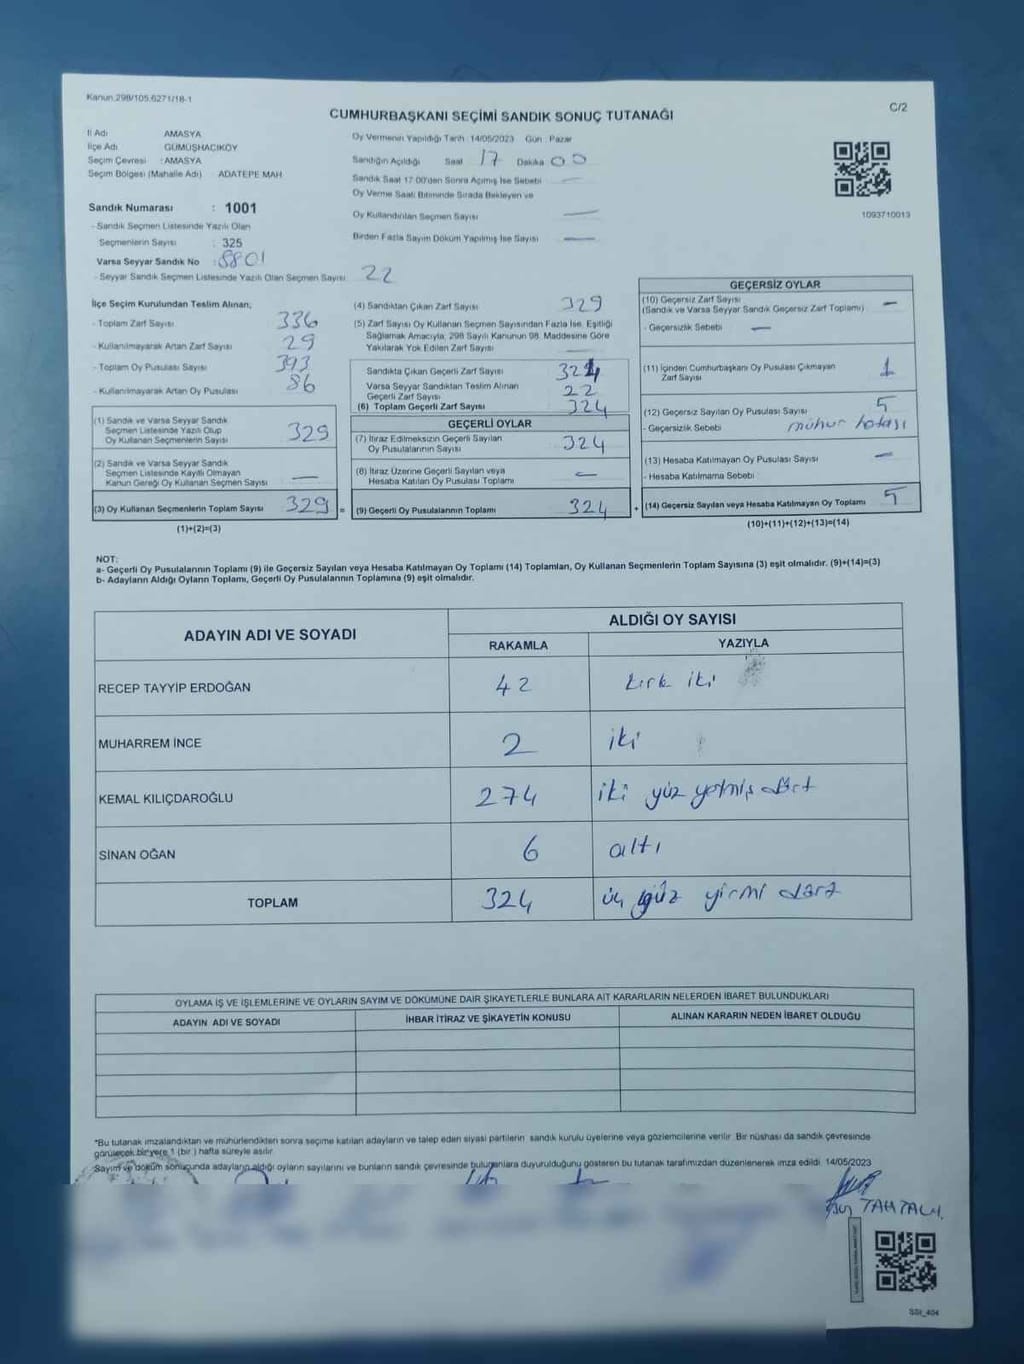 Kanun.298/105.6271/18-1
C/2
CUMHURBAŞKANI SEÇİMİ SANDIK SONUÇ TUTANAĞI
İl Adı AMASYA
İlçe Adı GÜMÜŞHACIKÖY
Seçim Çevresi : AMASYA
Seçim Bölgesi (Mahalle Adı) : ADATEPE MAH
Sandık Numarası : 1001
- Sandık Seçmen Listesinde Yazılı Olan
Seçmenlerin Sayısı : 325
Varsa Seyyar Sandık No : 8801
- Seyyar Sandık Seçmen Listesinde Yazılı Olan Seçmen Sayısı 22
Oy Vermenin Yapıldığı Tarih : 14/05/2023 Gün : Pazar
Sandığın Açıldığı Saat 17 Dakika 00
Sandık Saat 17:00'den Sonra Açılmış İse Sebebi —
Oy Verme Saati Bitiminde Sırada Bekleyen ve
Oy Kullandırılan Seçmen Sayısı —
Birden Fazla Sayım Döküm Yapılmış İse Sayısı —
1093710013
İlçe Seçim Kurulundan Teslim Alınan;
- Toplam Zarf Sayısı 336
- Kullanılmayarak Artan Zarf Sayısı 29
- Toplam Oy Pusulası Sayısı 393
- Kullanılmayarak Artan Oy Pusulası 86
(1) Sandık ve Varsa Seyyar Sandık
Seçmen Listesinde Yazılı Olup
Oy Kullanan Seçmenlerin Sayısı 329
(2) Sandık ve Varsa Seyyar Sandık
Seçmen Listesinde Kayıtlı Olmayan
Kanun Gereği Oy Kullanan Seçmen Sayısı —
(3) Oy Kullanan Seçmenlerin Toplam Sayısı 329 =
(1)+(2)=(3)
(4) Sandıktan Çıkan Zarf Sayısı 329
(5) Zarf Sayısı Oy Kullanan Seçmen Sayısından Fazla İse, Eşitliği
Sağlamak Amacıyla, 298 Sayılı Kanunun 98. Maddesine Göre
Yakılarak Yok Edilen Zarf Sayısı —
Sandıkta Çıkan Geçerli Zarf Sayısı 324
Varsa Seyyar Sandıktan Teslim Alınan
Geçerli Zarf Sayısı 22
(6) Toplam Geçerli Zarf Sayısı 324
GEÇERLİ OYLAR
(7) İtiraz Edilmeksizin Geçerli Sayılan
Oy Pusulalarının Sayısı 324
(8) İtiraz Üzerine Geçerli Sayılan veya
Hesaba Katılan Oy Pusulası Toplamı —
(9) Geçerli Oy Pusulalarının Toplamı 324 +
GEÇERSİZ OYLAR
(10) Geçersiz Zarf Sayısı
(Sandık ve Varsa Seyyar Sandık Geçersiz Zarf Toplamı) —
- Geçersizlik Sebebi —
(11) İçinden Cumhurbaşkanı Oy Pusulası Çıkmayan
Zarf Sayısı 1
(12) Geçersiz Sayılan Oy Pusulası Sayısı 5
- Geçersizlik Sebebi mühür hatası
(13) Hesaba Katılmayan Oy Pusulası Sayısı —
- Hesaba Katılmama Sebebi
(14) Geçersiz Sayılan veya Hesaba Katılmayan Oy Toplamı 5
(10)+(11)+(12)+(13)=(14)
NOT:
a- Geçerli Oy Pusulalarının Toplamı (9) ile Geçersiz Sayılan veya Hesaba Katılmayan Oy Toplamı (14) Toplamları, Oy Kullanan Seçmenlerin Toplam Sayısına (3) eşit olmalıdır. (9)+(14)=(3)
b- Adayların Aldığı Oyların Toplamı, Geçerli Oy Pusulalarının Toplamına (9) eşit olmalıdır.
ADAYIN ADI VE SOYADI ALDIĞI OY SAYISI
RAKAMLA YAZIYLA
RECEP TAYYİP ERDOĞAN 42 kırk iki
MUHARREM İNCE 2 iki
KEMAL KILIÇDAROĞLU 274 iki yüz yetmiş dört
SİNAN OĞAN 6 altı
TOPLAM 324 üç yüz yirmi dört
OYLAMA İŞ VE İŞLEMLERİNE VE OYLARIN SAYIM VE DÖKÜMÜNE DAİR ŞİKAYETLERLE BUNLARA AİT KARARLARIN NELERDEN İBARET BULUNDUKLARI
ADAYIN ADI VE SOYADI İHBAR İTİRAZ VE ŞİKAYETİN KONUSU ALINAN KARARIN NEDEN İBARET OLDUĞU
"Bu tutanak imzalandıktan ve mühürlendikten sonra seçime katılan adayların ve talep eden siyasi partilerin sandık kurulu üyelerine veya gözlemcilerine verilir. Bir nüshası da sandık çevresinde
görülecek bir yere 1 (bir) hafta süreyle asılır.
Sayım ve döküm sonucunda adayların aldığı oyların sayılarını ve bunların sandık çevresinde bulunanlara duyurulduğunu gösteren bu tutanak tarafımızdan düzenlenerek imza edildi. 14/05/2023
TAHTALI
SSI_404